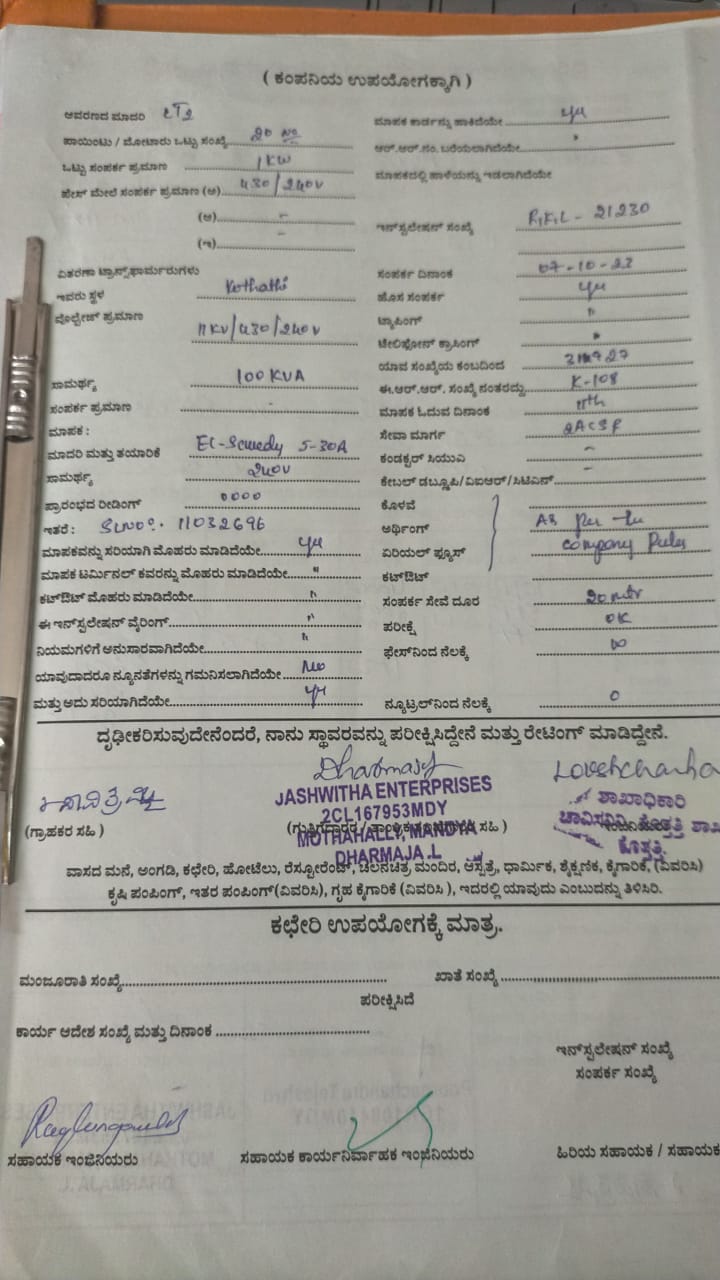 ( ಕಂಪನಿಯ ಉಪಯೋಗಕ್ಕಾಗಿ )
ಆವರಣದ ಮಾದರಿ LT2
ಮಾಪಕ ಕಾರ್ಡನ್ನು ಹಾಕಿದೆಯೇ yes
ಪಾಯಿಂಟು / ಮೋಟಾರು ಒಟ್ಟು ಸಂಖ್ಯೆ 20 No
ಆರ್.ಆರ್.ನಂ. ಬರೆಯಲಾಗಿದೆಯೇ "
ಒಟ್ಟು ಸಂಪರ್ಕ ಪ್ರಮಾಣ 1 KW
ಮಾಪಕದಲ್ಲಿ ಹಾಳೆಯನ್ನು ಇಡಲಾಗಿದೆಯೇ
ಫೇಸ್ ಮೇಲೆ ಸಂಪರ್ಕ ಪ್ರಮಾಣ (ಅ) 430/240V
(ಆ) -
ಇನ್‌ಸ್ಟಲೇಷನ್ ಸಂಖ್ಯೆ - 21230
(ಇ) -
ವಿತರಣಾ ಟ್ರಾನ್ಸ್‌ಫಾರ್ಮರುಗಳು
ಸಂಪರ್ಕ ದಿನಾಂಕ 07-10-23
ಇವರು ಸ್ಥಳ Kothathi
ಹೊಸ ಸಂಪರ್ಕ yes
ವೋಲ್ಟೇಜ್ ಪ್ರಮಾಣ 11KV/430/240V
ಟ್ಯಾಪಿಂಗ್ "
ಟೆಲಿಫೋನ್ ಕ್ರಾಸಿಂಗ್ "
ಯಾವ ಸಂಖ್ಯೆಯ ಕಂಬದಿಂದ
ಸಾಮರ್ಥ್ಯ 100 KVA
ಈ.ಆರ್.ಆರ್. ಸಂಖ್ಯೆ ನಂತರದ್ದು K-108
ಸಂಪರ್ಕ ಪ್ರಮಾಣ -
ಮಾಪಕ ಓದುವ ದಿನಾಂಕ 11th
ಮಾಪಕ :
ಸೇವಾ ಮಾರ್ಗ
ಮಾದರಿ ಮತ್ತು ತಯಾರಿಕೆ 5-30A
ಕಂಡಕ್ಟರ್ ಸಿಯುವಿ -
ಸಾಮರ್ಥ್ಯ 240V
ಕೇಬಲ್ ಡಬ್ಲ್ಯೂಪಿ/ವಿಐಆರ್/ಸಿಟಿವಿನ್ -
ಪ್ರಾರಂಭದ ರೀಡಿಂಗ್ 0000
ಕೊಳವೆ
ಇತರೆ : SLNo. 11032696
ಅರ್ಥಿಂಗ್ As per the
ಮಾಪಕವನ್ನು ಸರಿಯಾಗಿ ಮೊಹರು ಮಾಡಿದೆಯೇ yes
ಏರಿಯಲ್ ಫ್ಯೂಸ್ Company Rules
ಮಾಪಕ ಟರ್ಮಿನಲ್ ಕವರನ್ನು ಮೊಹರು ಮಾಡಿದೆಯೇ "
ಕಟ್‌ಔಟ್
ಕಟ್‌ಔಟ್ ಮೊಹರು ಮಾಡಿದೆಯೇ "
ಸಂಪರ್ಕ ಸೇವೆ ದೂರ 20 mtr
ಈ ಇನ್‌ಸ್ಟಲೇಷನ್ ವೈರಿಂಗ್ "
ಪರೀಕ್ಷೆ OK
ನಿಯಮಗಳಿಗೆ ಅನುಸಾರವಾಗಿದೆಯೇ "
ಫೇಸ್‌ನಿಂದ ನೆಲಕ್ಕೆ ∞
ಯಾವುದಾದರೂ ನ್ಯೂನತೆಗಳನ್ನು ಗಮನಿಸಲಾಗಿದೆಯೇ No
ಮತ್ತು ಅದು ಸರಿಯಾಗಿದೆಯೇ yes
ನ್ಯೂಟ್ರಲ್‌ನಿಂದ ನೆಲಕ್ಕೆ 0
ದೃಢೀಕರಿಸುವುದೇನೆಂದರೆ, ನಾನು ಸ್ಥಾವರವನ್ನು ಪರೀಕ್ಷಿಸಿದ್ದೇನೆ ಮತ್ತು ರೇಟಿಂಗ್ ಮಾಡಿದ್ದೇನೆ.
JASHWITHA ENTERPRISES
2CL167953MDY
MOTHAHALLY, MANDYA
DHARMAJA.L
(ಗ್ರಾಹಕರ ಸಹಿ )
(ಗುತ್ತಿಗೆದಾರರ / ಸಹಿ )
ಶಾಖಾಧಿಕಾರಿ
ಚಾವಿಸನಿನಿ, ಕೊತ್ತತ್ತಿ ಶಾಖೆ
ಕೊತ್ತತ್ತಿ
ವಾಸದ ಮನೆ, ಅಂಗಡಿ, ಕಛೇರಿ, ಹೋಟೆಲು, ರೆಸ್ಟೋರೆಂಟ್, ಚಲನಚಿತ್ರ ಮಂದಿರ, ಆಸ್ಪತ್ರೆ, ಧಾರ್ಮಿಕ, ಶೈಕ್ಷಣಿಕ, ಕೈಗಾರಿಕೆ, (ವಿವರಿಸಿ)
ಕೃಷಿ ಪಂಪಿಂಗ್, ಇತರ ಪಂಪಿಂಗ್(ವಿವರಿಸಿ), ಗೃಹ ಕೈಗಾರಿಕೆ (ವಿವರಿಸಿ ), ಇದರಲ್ಲಿ ಯಾವುದು ಎಂಬುದನ್ನು ತಿಳಿಸಿರಿ.
ಕಛೇರಿ ಉಪಯೋಗಕ್ಕೆ ಮಾತ್ರ.
ಮಂಜೂರಾತಿ ಸಂಖ್ಯೆ
ಖಾತೆ ಸಂಖ್ಯೆ
ಪರೀಕ್ಷಿಸಿದೆ
ಕಾರ್ಯ ಆದೇಶ ಸಂಖ್ಯೆ ಮತ್ತು ದಿನಾಂಕ
ಇನ್‌ಸ್ಟಲೇಷನ್ ಸಂಖ್ಯೆ
ಸಂಪರ್ಕ ಸಂಖ್ಯೆ
ಸಹಾಯಕ ಇಂಜಿನಿಯರು
ಸಹಾಯಕ ಕಾರ್ಯನಿರ್ವಾಹಕ ಇಂಜಿನಿಯರು
ಹಿರಿಯ ಸಹಾಯಕ / ಸಹಾಯಕ